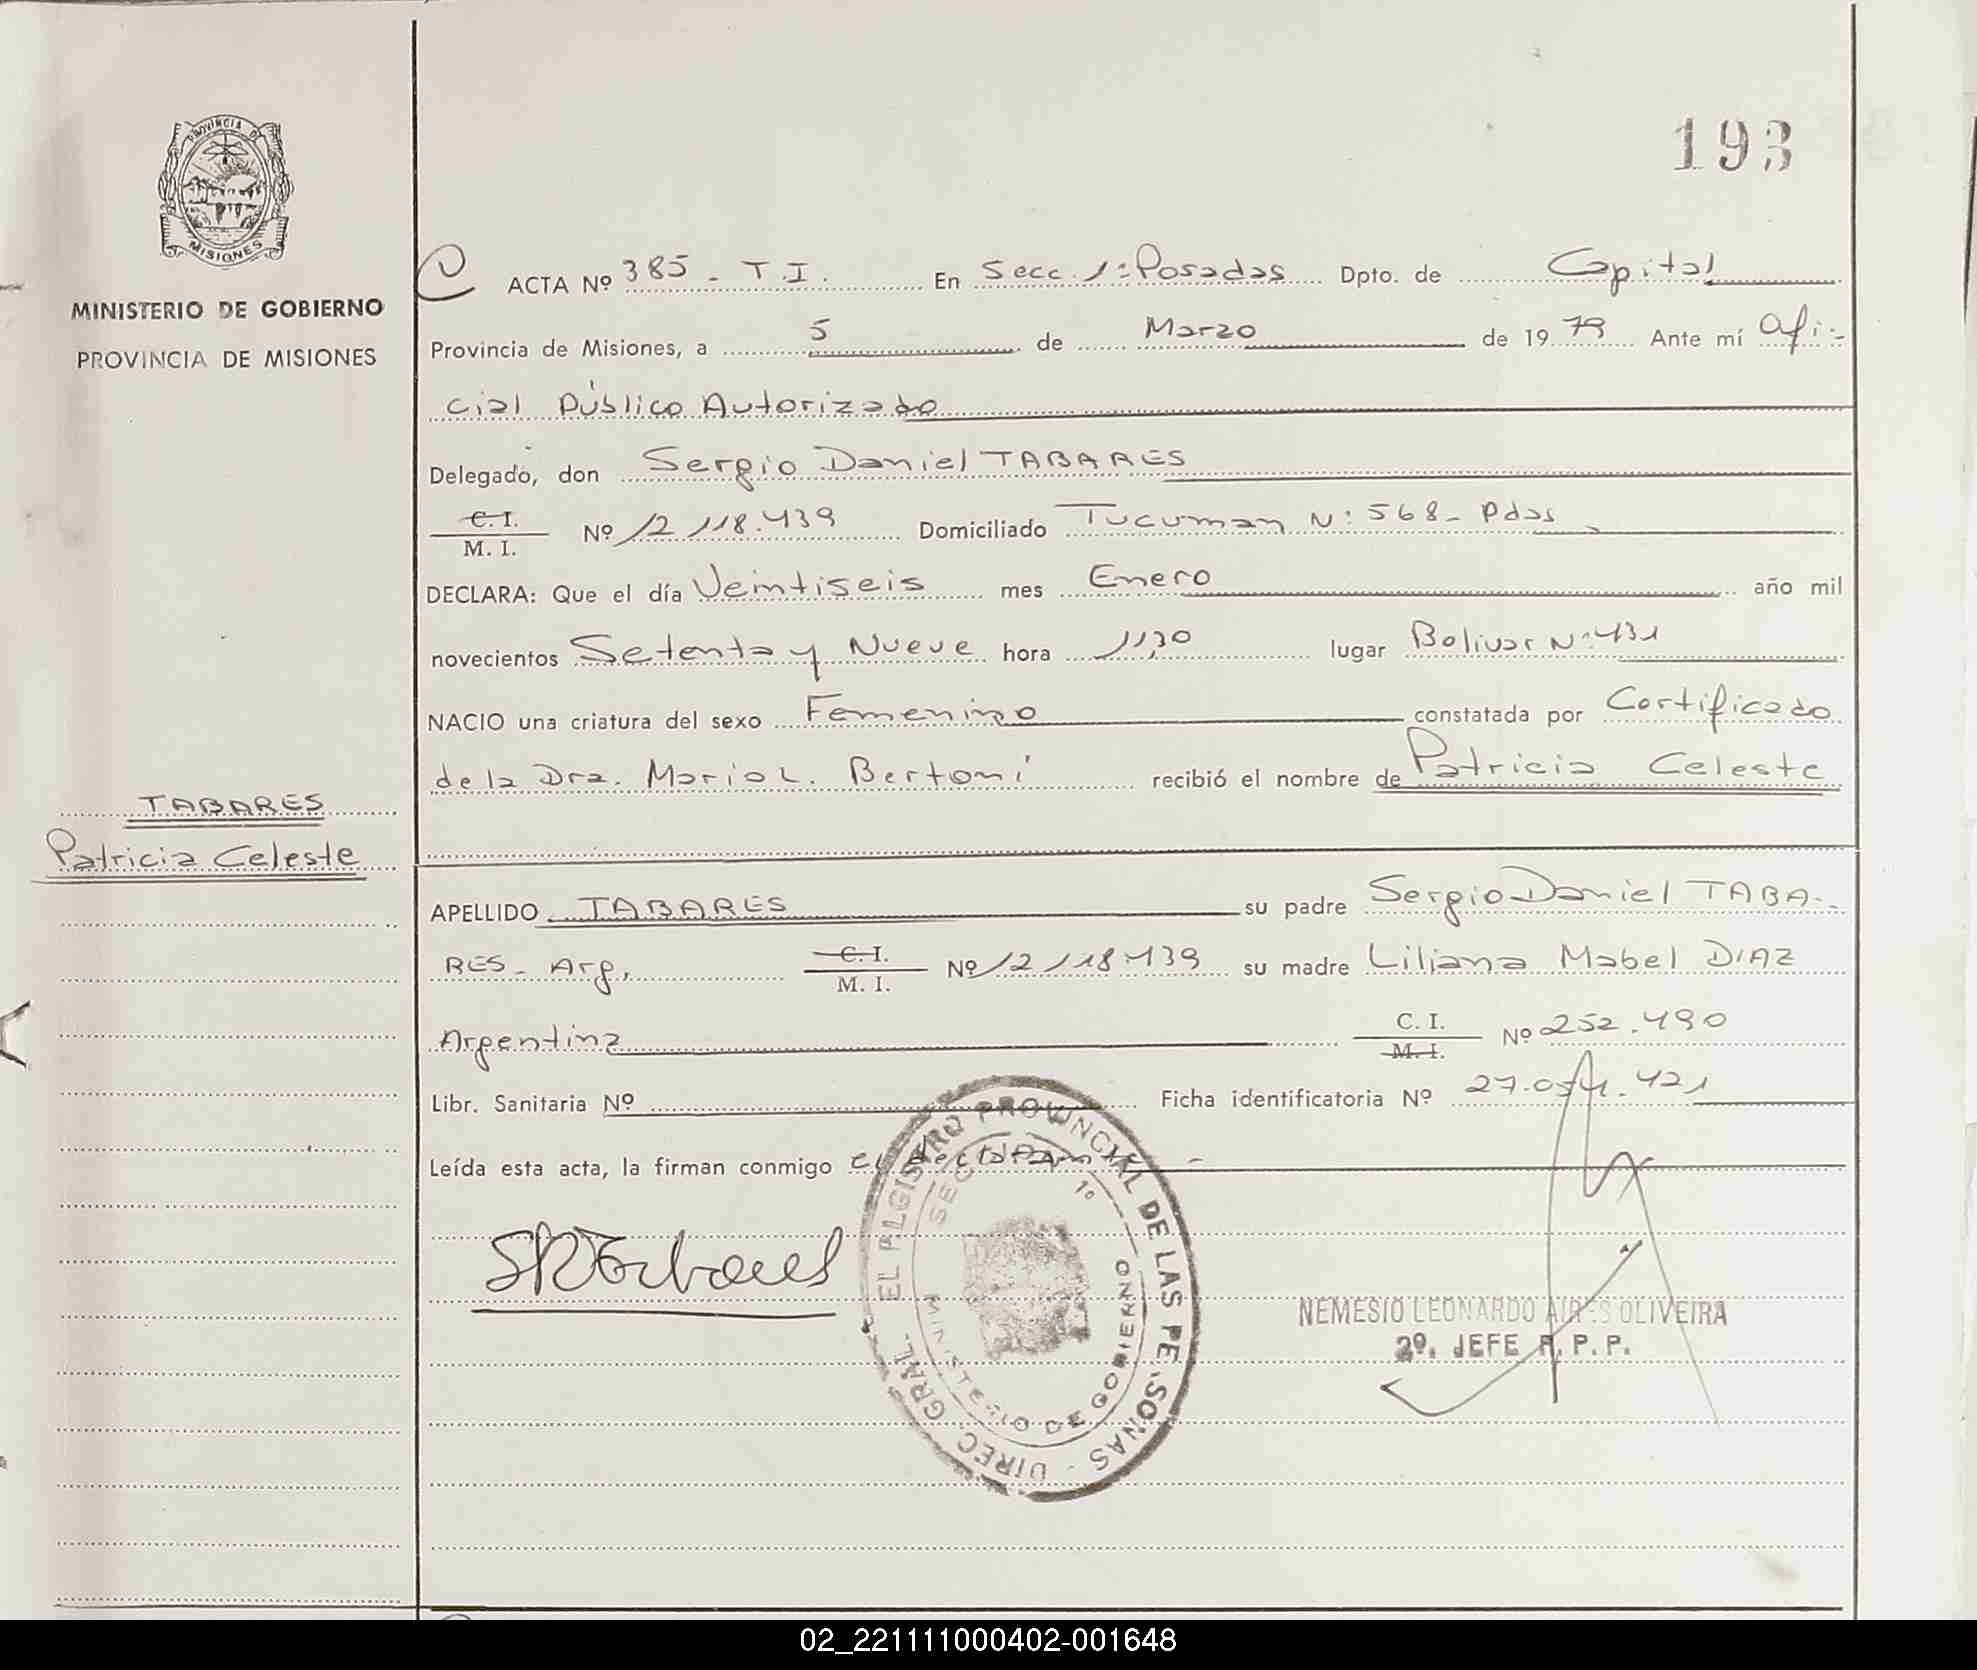 193
PROVINCIA DE
MISIONES
MINISTERIO DE GOBIERNO
PROVINCIA DE MISIONES
TABARES
Patricia Celeste
ACTA Nº 385 - T.I. En Secc. 1ª Posadas Dpto. de Capital
Provincia de Misiones, a 5 de Marzo de 1979 Ante mí Ofi-
cial Público Autorizado
Delegado, don Sergio Daniel TABARES
C. I.
M. I. Nº 12.118.439 Domiciliado Tucuman Nº 568 - Pdas
DECLARA: Que el día Veintiseis mes Enero año mil
novecientos Setenta y Nueve hora 11,30 lugar Bolivar Nº 431
NACIO una criatura del sexo Femenino constatada por Certificado
de la Dra. Maria L. Bertoni recibió el nombre de Patricia Celeste
APELLIDO TABARES su padre Sergio Daniel TABA-
RES - Arg, C. I. M. I. Nº 12.118.439 su madre Liliana Mabel DIAZ
Argentina C. I. M. I. Nº 252.490
Libr. Sanitaria Nº Ficha identificatoria Nº 27.054.421
Leída esta acta, la firman conmigo el declarante
DIREC. GRAL. EL REGISTRO PROVINCIAL DE LAS PERSONAS
SECC 1º
MINISTERIO DE GOBIERNO
NEMESIO LEONARDO AIRES OLIVEIRA
2º. JEFE R. P. P.
02_221111000402-001648